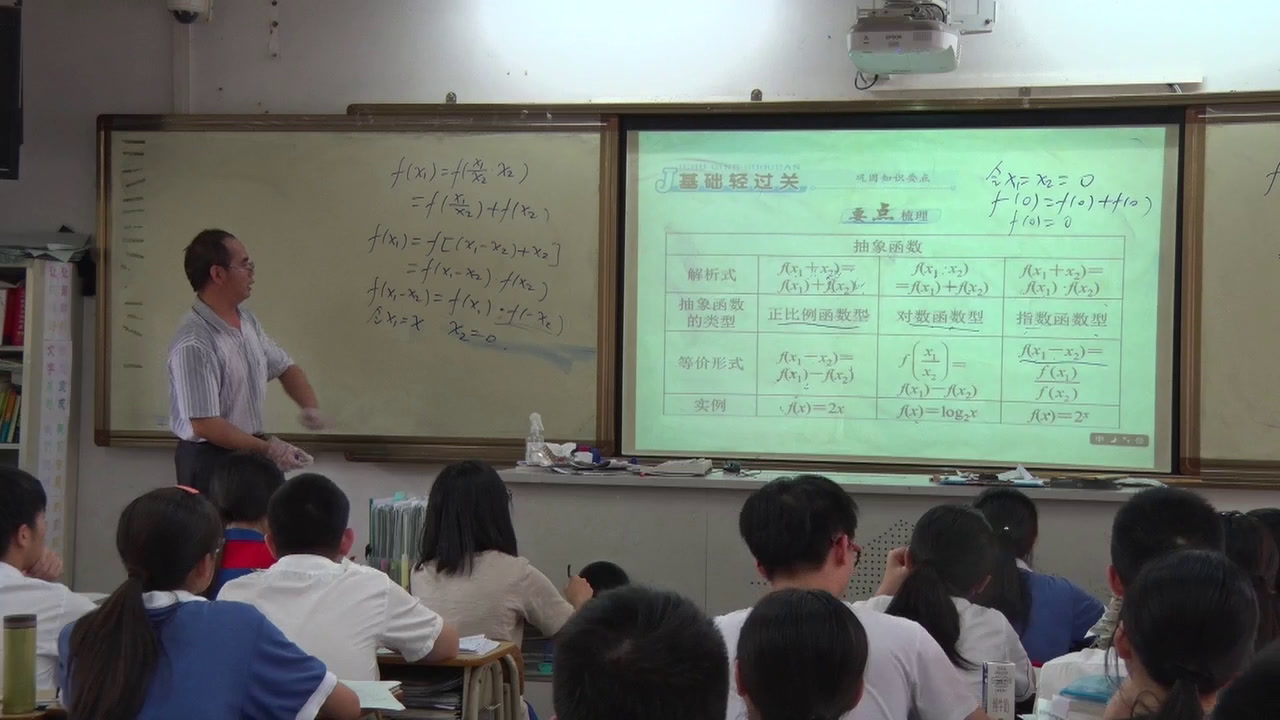 f(x₁)=f(x₁/x₂·x₂)
=f(x₁/x₂)+f(x₂)
f(x₁)=f[(x₁-x₂)+x₂]
=f(x₁-x₂)·f(x₂)
f(x₁-x₂)=f(x₁)·f(-x₂)
令x₁=x x₂=0
基础轻过关 巩固知识要点
要点 梳理
令x₁=x₂=0
f(0)=f(0)+f(0)
f(0)=0
抽象函数
解析式 f(x₁+x₂)=f(x₁)+f(x₂) f(x₁·x₂)=f(x₁)+f(x₂) f(x₁+x₂)=f(x₁)·f(x₂)
抽象函数的类型 正比例函数型 对数函数型 指数函数型
等价形式 f(x₁-x₂)=f(x₁)-f(x₂) f(x₁/x₂)=f(x₁)-f(x₂) f(x₁-x₂)=f(x₁)/f(x₂)
实例 f(x)=2x f(x)=log₂x f(x)=2ˣ
EPSON